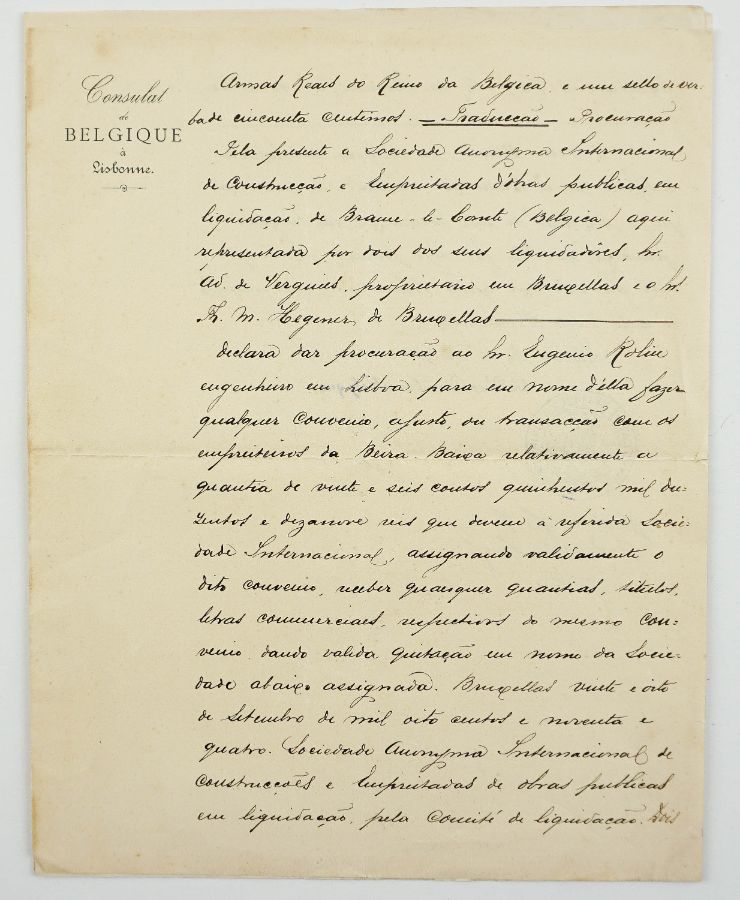 Consulat
de
BELGIQUE
à
Lisbonne.
Armas Reaes do Reino da Belgica, e um sello de ver-
ba de cincoenta centimos. — Traducção — Procuração
Pela presente a Sociedade Anonyma Internacional
de Construcção, e Empreitadas d'obras publicas, em
liquidação, de Braine-le-Comte (Belgica) aqui
representada por dois dos seus liquidadôres, Sr.
Ad. de Vergnies, proprietario em Bruxellas e o Sr.
Th. M. Hegener, de Bruxellas
declara dar procuração ao Sr. Eugenio Rolin
engenheiro em Lisboa, para em nome d'élla fazer
qualquer convenio, ajusto, ou transacção com os
empreiteiros da Beira Baixa relativamente a
quantia de vinte e seis contos quinhentos mil du-
zentos e dezanove reis que devem á referida Socie-
dade Internacional, assignando validamente o
dito convenio, receber quaesquer quantias, titulos,
letras commerciaes, respectivos do mesmo con-
venio, dando valida quitação em nome da Socie-
dade abaixo assignada. Bruxellas vinte e oito
de Setembro de mil oito centos e noventa e
quatro. Sociedade Anonyma Internacional de
Construcções e Empreitadas de obras publicas
em liquidação, pela Comité de liquidação. Dois